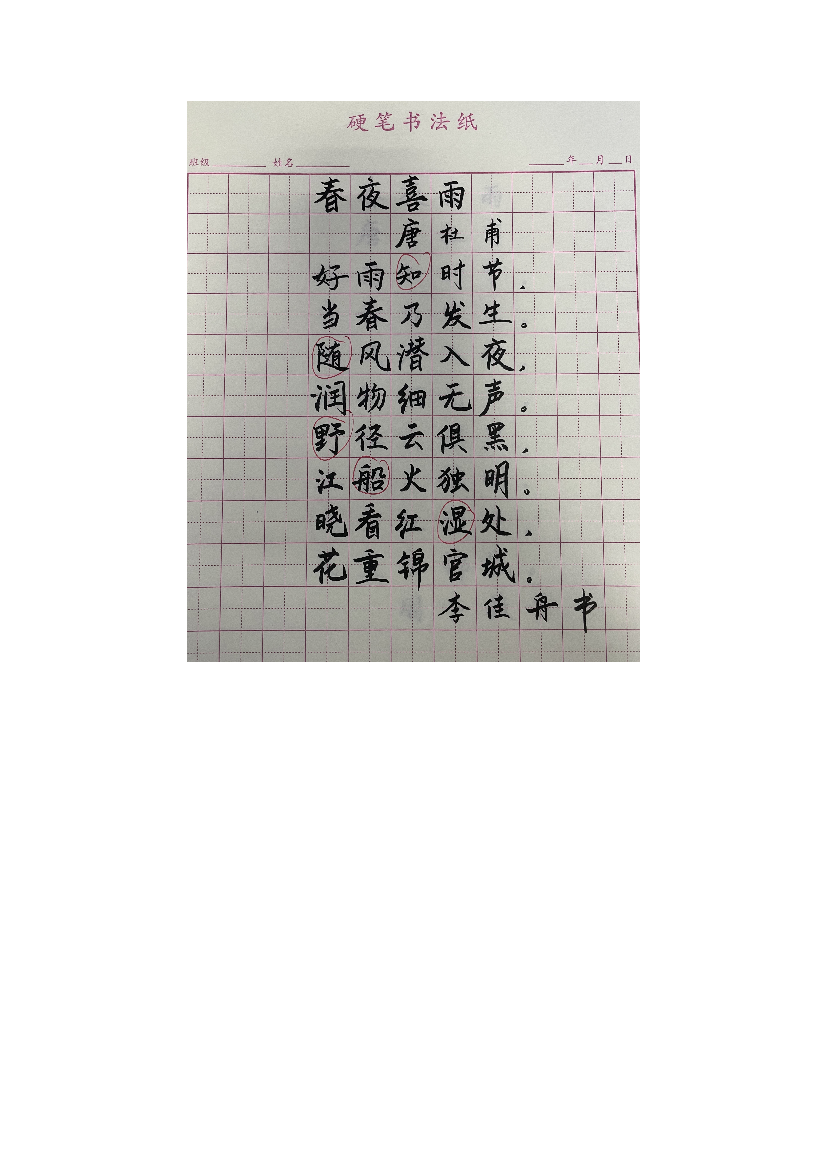 硬笔书法纸
班级 姓名 年 月 日
春夜喜雨
唐 杜 甫
好雨知时节，
当春乃发生。
随风潜入夜，
润物细无声。
野径云俱黑，
江船火独明。
晓看红湿处，
花重锦官城。
李佳舟书